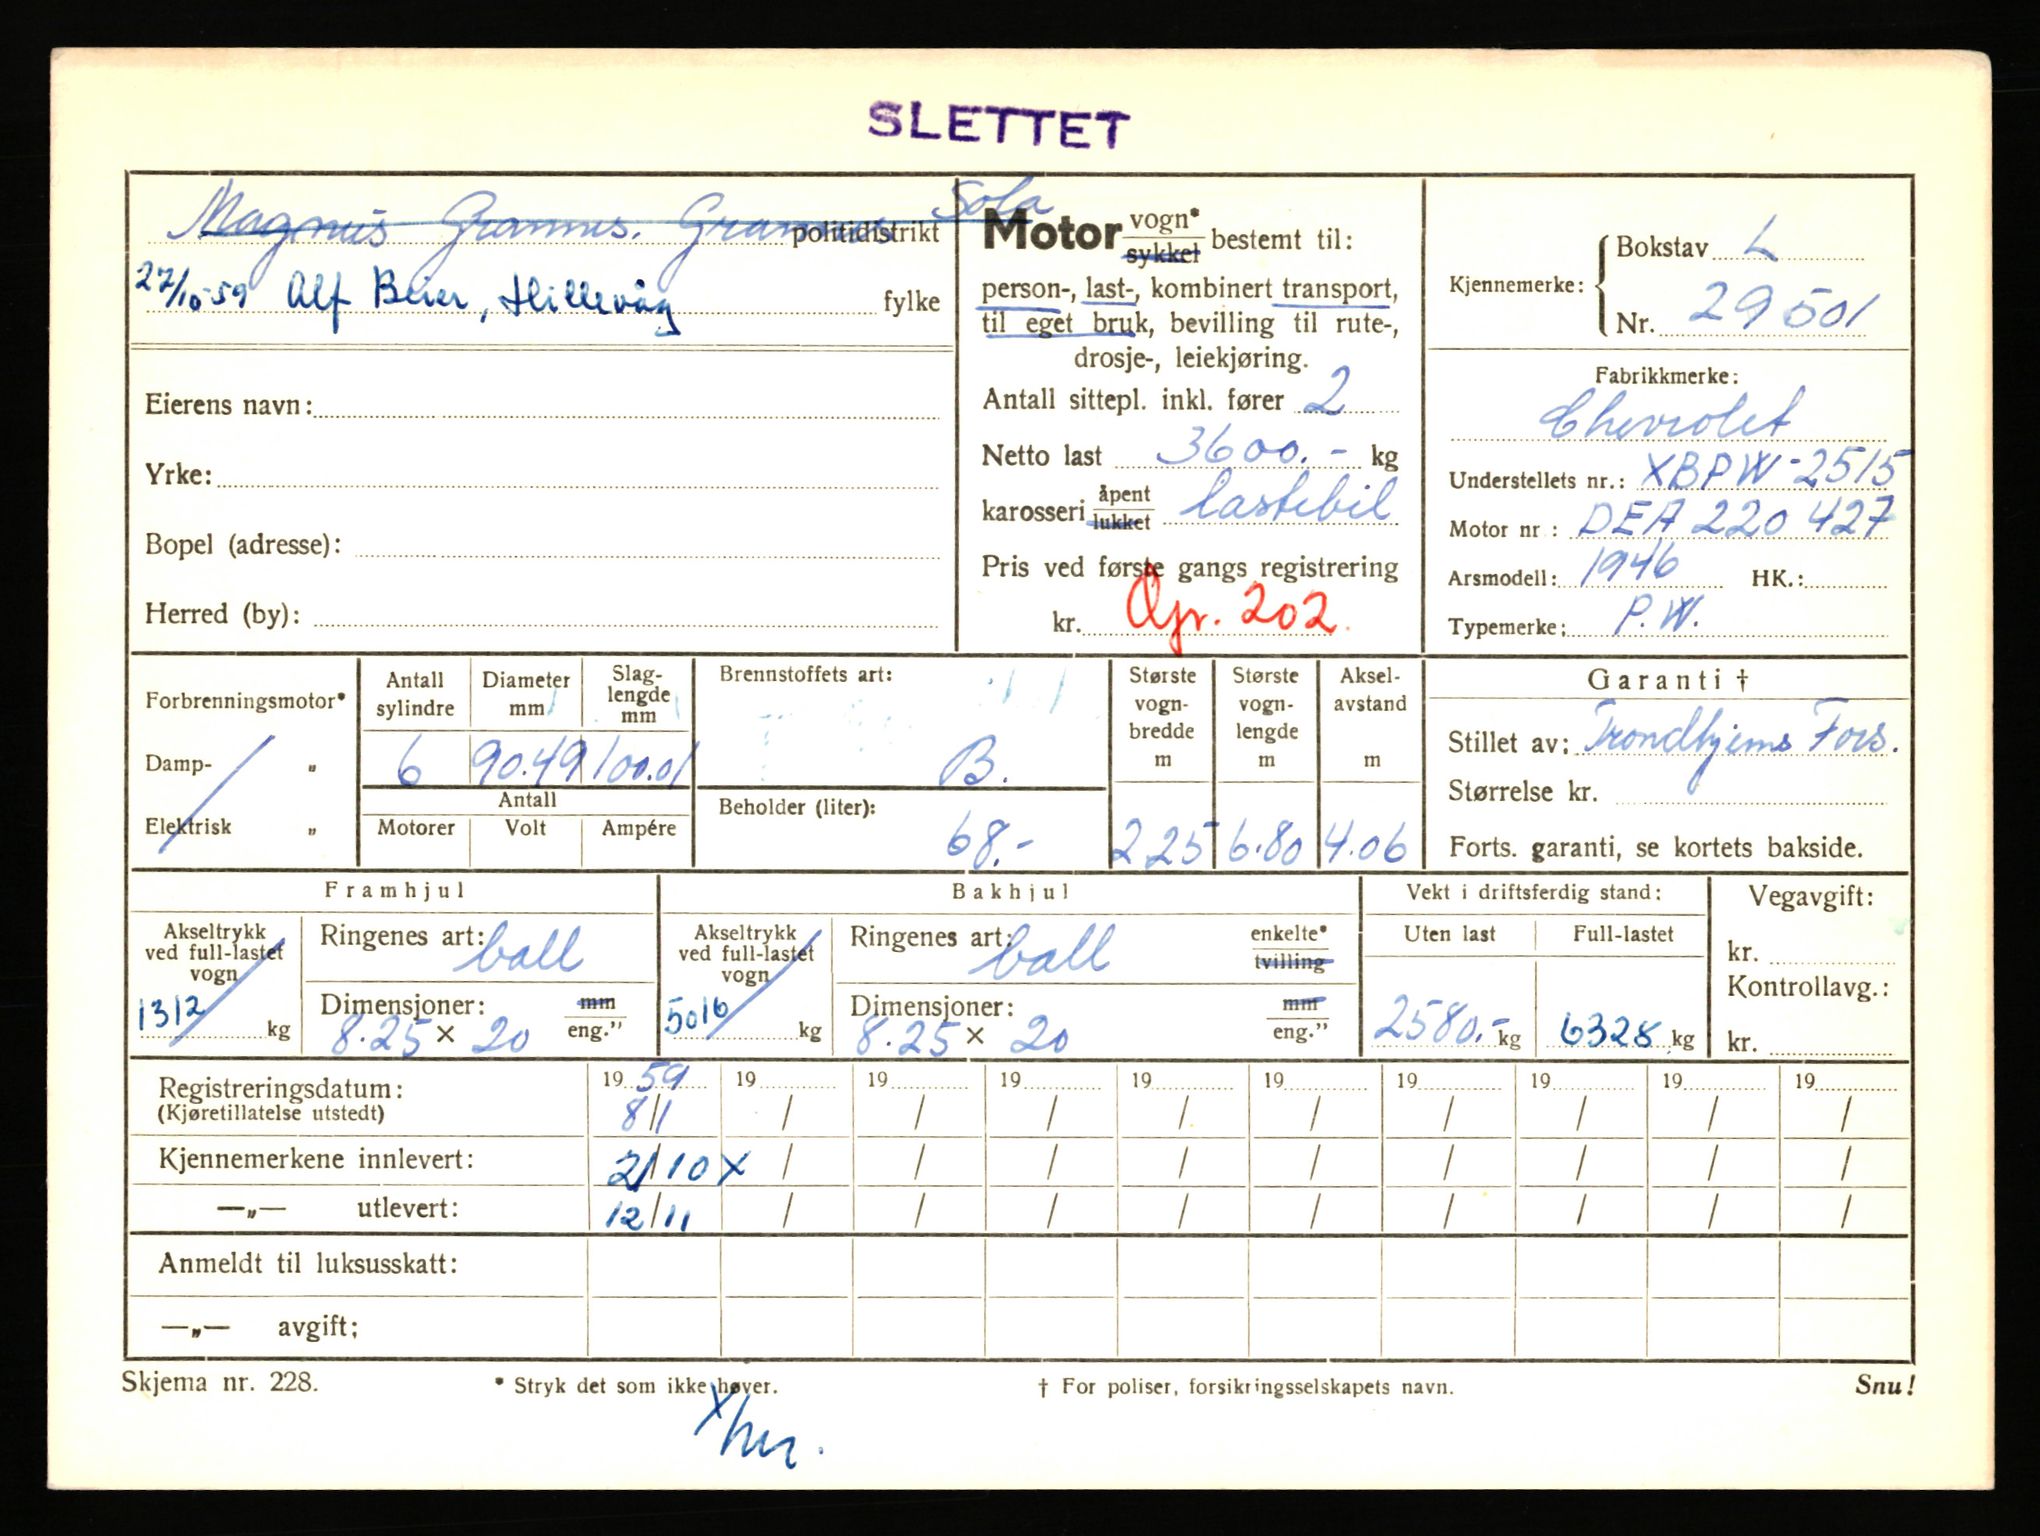 SLETTET
Magnus Grannes. Grannes Sola politidistrikt
27/10-59 Alf Beier, Hillevåg fylke
Eierens navn:
Yrke:
Bopel (adresse):
Herred (by):
Motor vogn* sykkel bestemt til:
person-, last-, kombinert transport,
til eget bruk, bevilling til rute-,
drosje-, leiekjøring.
Antall sittepl. inkl. fører 2
Netto last 3600.- kg
karosseri åpent lukket lastebil
Pris ved første gangs registrering
kr. Ojr. 202.
Kjennemerke: Bokstav L
Nr. 29501
Fabrikkmerke:
Chevrolet
Understellets nr.: XBPW-2515
Motor nr: DEA 220 427
Arsmodell: 1946 HK.:
Typemerke: P.W.
Forbrenningsmotor*
Damp- „
Elektrisk „
Antall sylindre 6
Diameter mm 90.49
Slag-lengde mm 100.01
Antall
Motorer Volt Ampére
Brennstoffets art:
B.
Beholder (liter):
68.-
Største vogn-bredde m 2 25
Største vogn-lengde m 6.80
Aksel-avstand m 4.06
Garanti †
Stillet av: Trondhjems Fors.
Størrelse kr.
Forts. garanti, se kortets bakside.
Framhjul
Akseltrykk ved full-lastet vogn 1312 kg
Ringenes art: ball
Dimensjoner: 8.25 x 20 mm eng."
Bakhjul
Akseltrykk ved full-lastet vogn 5016 kg
Ringenes art: ball enkelte* tvilling
Dimensjoner: 8.25 x 20 mm eng."
Vekt i driftsferdig stand:
Uten last 2580.- kg
Full-lastet 6328 kg
Vegavgift:
kr.
Kontrollavg.:
kr.
Registreringsdatum: 19 59 19 19 19 19 19 19 19 19 19
(Kjøretillatelse utstedt) 8/1 / / / / / / / / /
Kjennemerkene innlevert: 21/10 x / / / / / / / / /
—„— utlevert: 12/11 / / / / / / / / /
Anmeldt til luksusskatt:
—„— avgift;
Skjema nr. 228. * Stryk det som ikke høver. † For poliser, forsikringsselskapets navn. Snu!
x